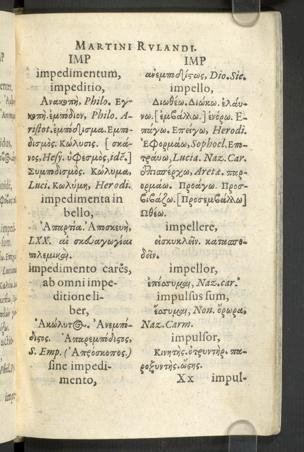 MARTINI RVLANDI.
IMP
impedimentum,
impeditio,
Ἀνακοπὴ, Philo. Ἐγ-
κοπὴ. ἐμπόδιον, Philo. A-
ristot. ἐμπόδισμα. Ἐμπο-
δισμὸς. Κώλυσις.
Hesy. ὑφεσμὸς, idē.]
Συμποδισμὸς. Κώλυμα,
Luci. Κωλύμη, Herodi.
impedimenta in
bello,
Ἀπαρτία. Ἀποσκευὴ,
LXX. αἱ σκευαγωγίαι
impedimento carēs,
ab omni impe-
ditione li-
ber,
Ἀκώλυτος. Ἀνεμπό-
διστος. Ἀπαρεμπόδιστος.
S. Emp. (Ἀπρόσκοπος.)
sine impedi-
mento,
IMP
ἀνεμποδίστως, Dio. Sic.
impello,
Διωθέω. Διώκω. ἐλαύ-
νω. [ἐμβάλλω.] Ἐ-
πάγω. Ἐπείγω, Herodi.
Ἐφορμάω, Sophocl. Ἐπο-
τρύνω, Lucia. Naz. Car.
Areta. παρ-
ορμάω. Προάγω. Προσ-
βιβάζω. [Προσεμβάλλω]
Ὠθέω.
impellere,
εἰσκυκλεῖν.
impellor,
Naz. car.
impulsus sum,
Non.
Naz. Carm.
impulsor,
Κινητὴς. ὀτρυντὴρ. πα-
ροξυντὴς. ὤσης.
Xx impul-